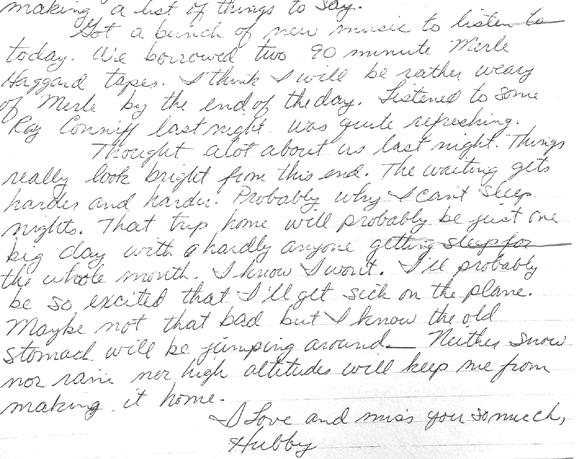 making a list of things to say.
Got a bunch of new music to listen to
today. We borrowed two 90 minute Merle
Haggard tapes. I think I will be rather weary
of Merle by the end of the day. Listened to some
Ray Conniff last night. was quite refreshing.
Thought alot about us last night. Things
really look bright from this end. The waiting gets
harder and harder. Probably why I cant sleep
nights. That trip home will probably be just one
big day with hardly anyone getting sleep for
the whole month. I know I wont. I'll probably
be so excited that I'll get sick on the plane.
Maybe not that bad but I know the old
stomach will be jumping around. Neither snow
nor rain nor high altitudes will keep me from
making it home.
I Love and miss you so much,
Hubby